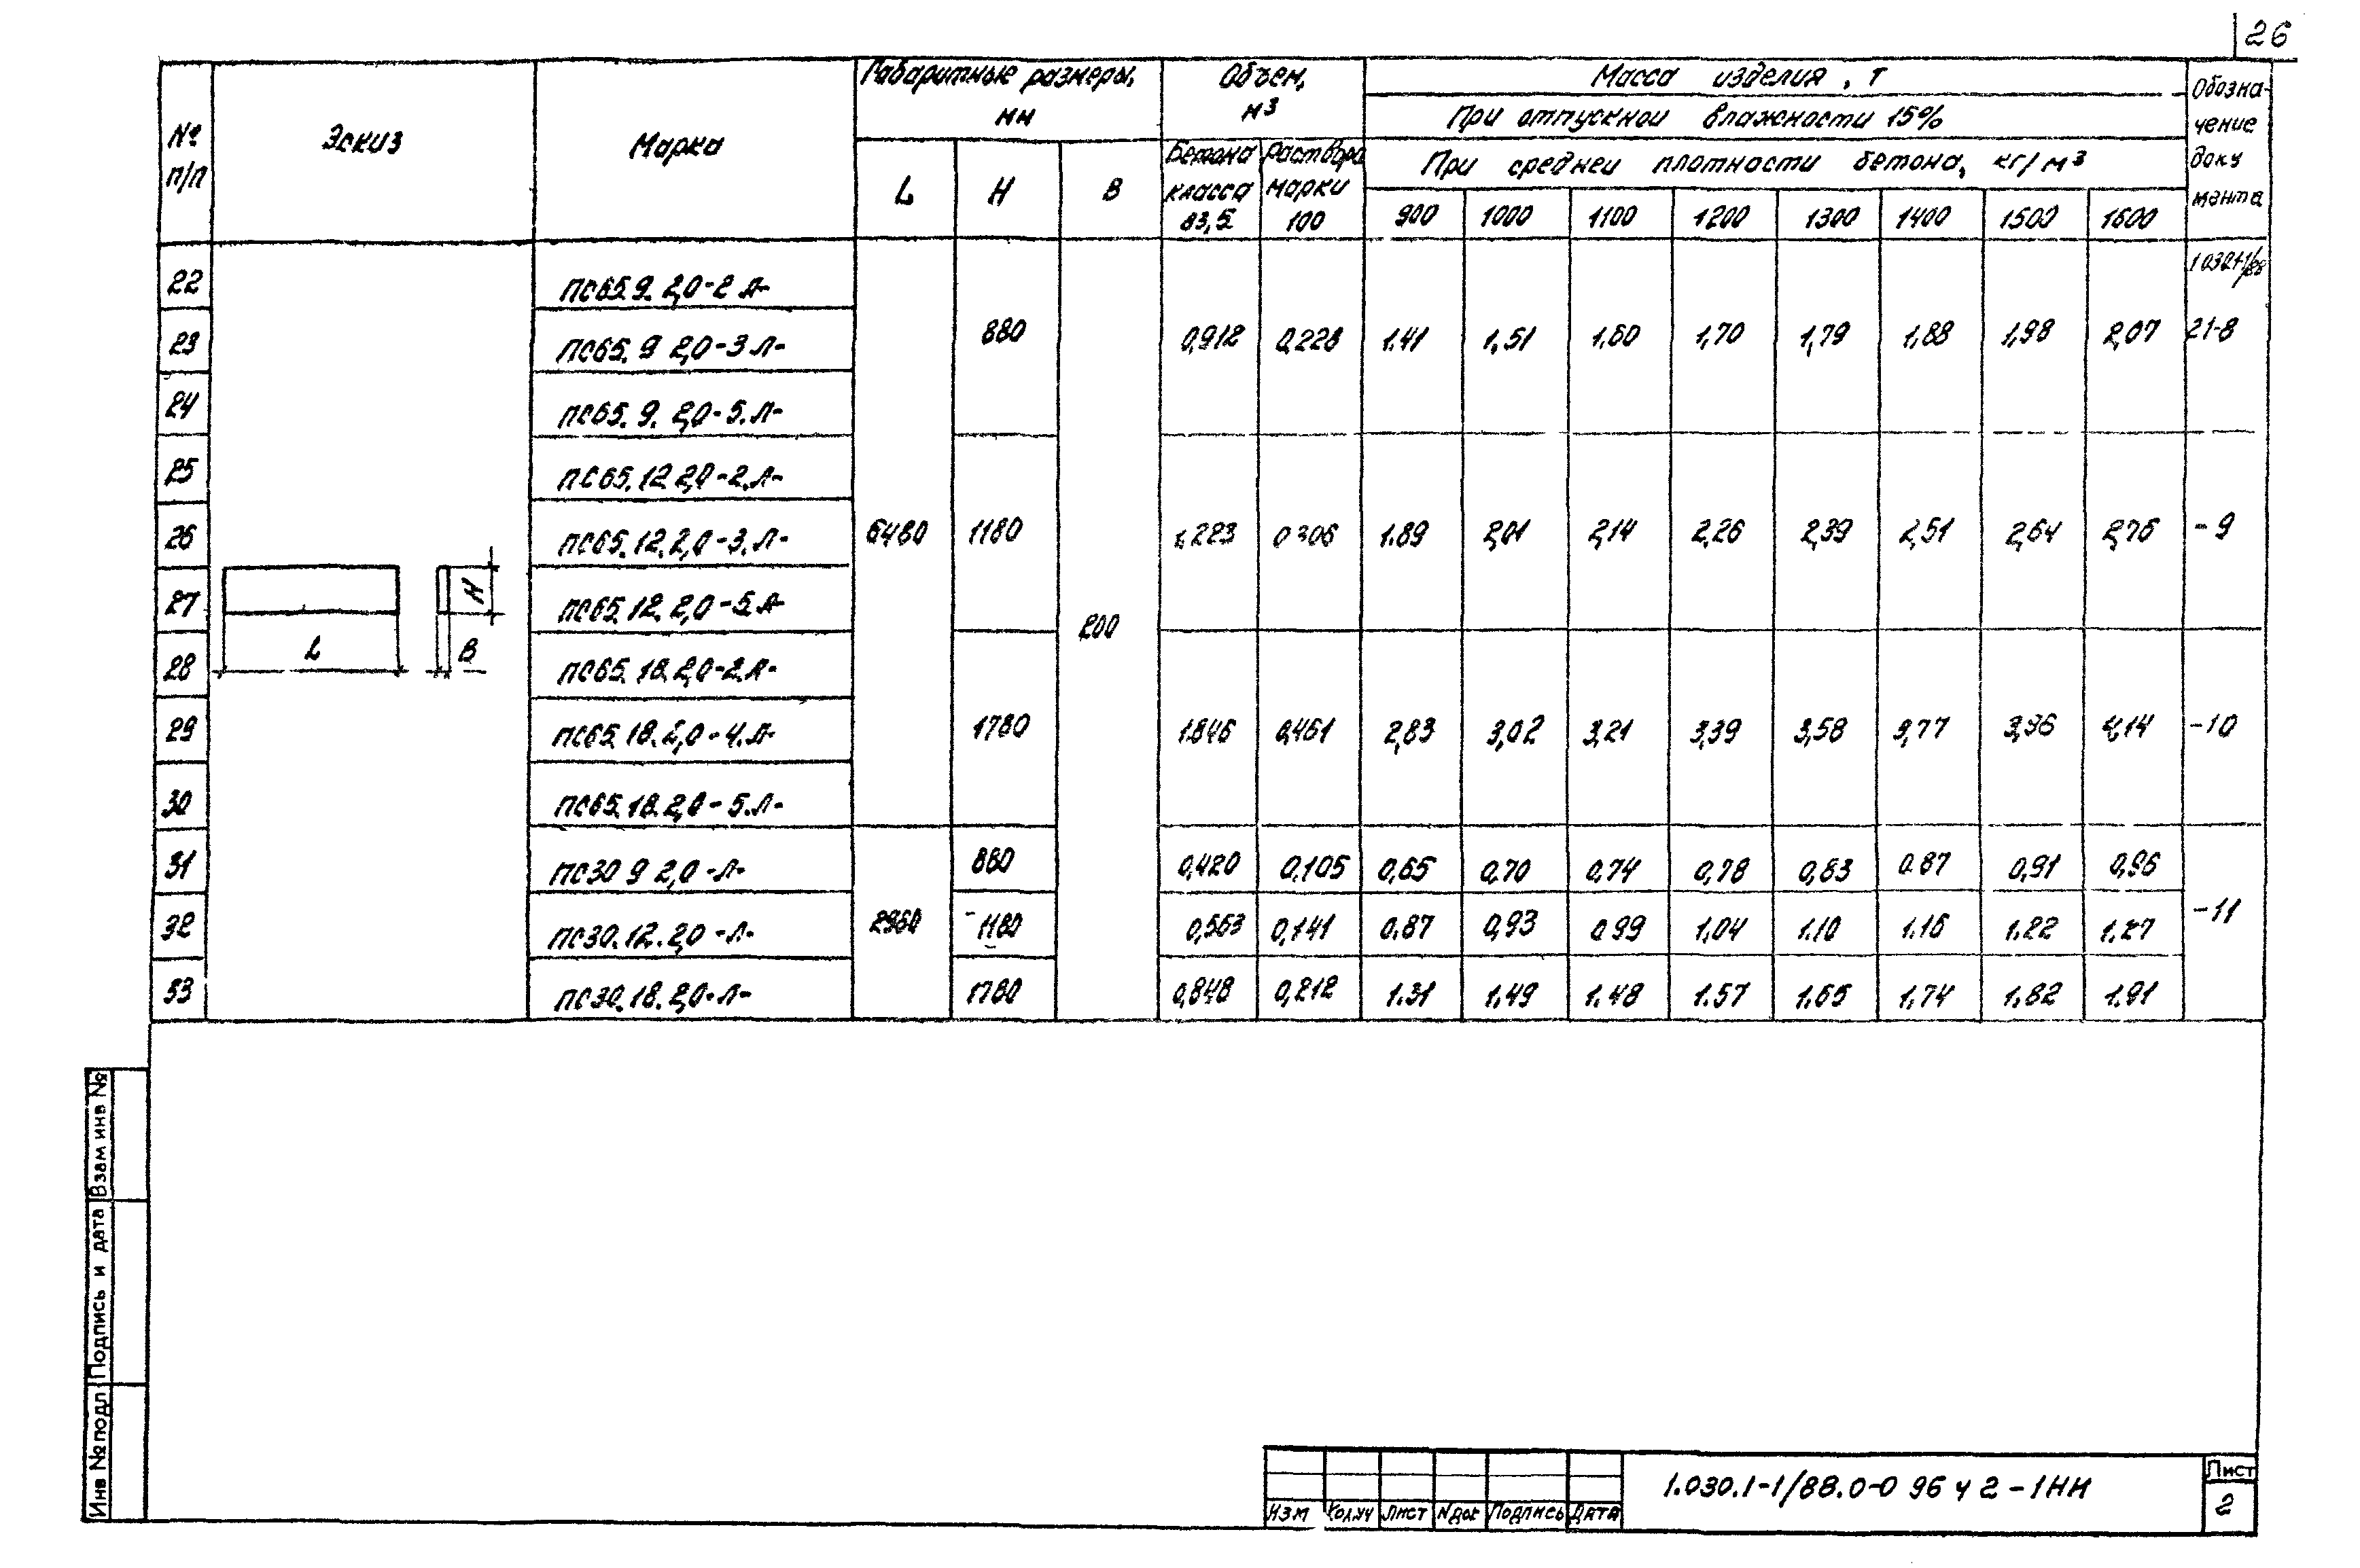 26
№ п/п
Эскиз
Марка
Габаритные размеры, мм
Объем, м³
Масса изделия, т
При отпускной влажности 15%
При средней плотности бетона, кг/м³
Обозначение документа
L H B
Бетона класса В3,5
Раствора марки 100
900 1000 1100 1200 1300 1400 1500 1600
22 ПС65.9.2,0-2л-
23 ПС65.9 2,0-3л- 880 0,912 0,228 1.41 1,51 1,60 1,70 1,79 1,88 1,98 2,07 21-8
24 ПС65.9.2,0-5.л-
25 ПС65.12 2,0-2.л-
26 ПС65.12.2,0-3.л- 6480 1180 1,223 0306 1.89 2,01 2,14 2,26 2,39 2,51 2,64 2,76 -9
27 ПС65.12.2,0-5.л-
200
28 ПС65.18.2,0-2.л-
29 ПС65.18.2,0-4.л- 1780 1.846 0,461 2,83 3,02 3,21 3,39 3,58 3,77 3,96 4,14 -10
30 ПС65.18.2,0-5.л-
31 ПС30 9 2,0-л- 880 0,420 0,105 0,65 0,70 0,74 0,78 0,83 0.87 0,91 0,96
32 ПС30.12.2,0-л- 2980 1180 0,563 0,141 0.87 0,93 0.99 1,04 1.10 1.16 1.22 1.27 -11
33 ПС30.18.2,0-л- 1780 0,848 0,212 1.31 1,49 1.48 1.57 1,65 1,74 1,82 1.91
H
L
B
Взам инв №
Подпись и дата
Инв № подл
Изм Кол.уч Лист Nдок Подпись Дата
1.030.1-1/88.0-0 96 ч 2-1НИ
Лист
2